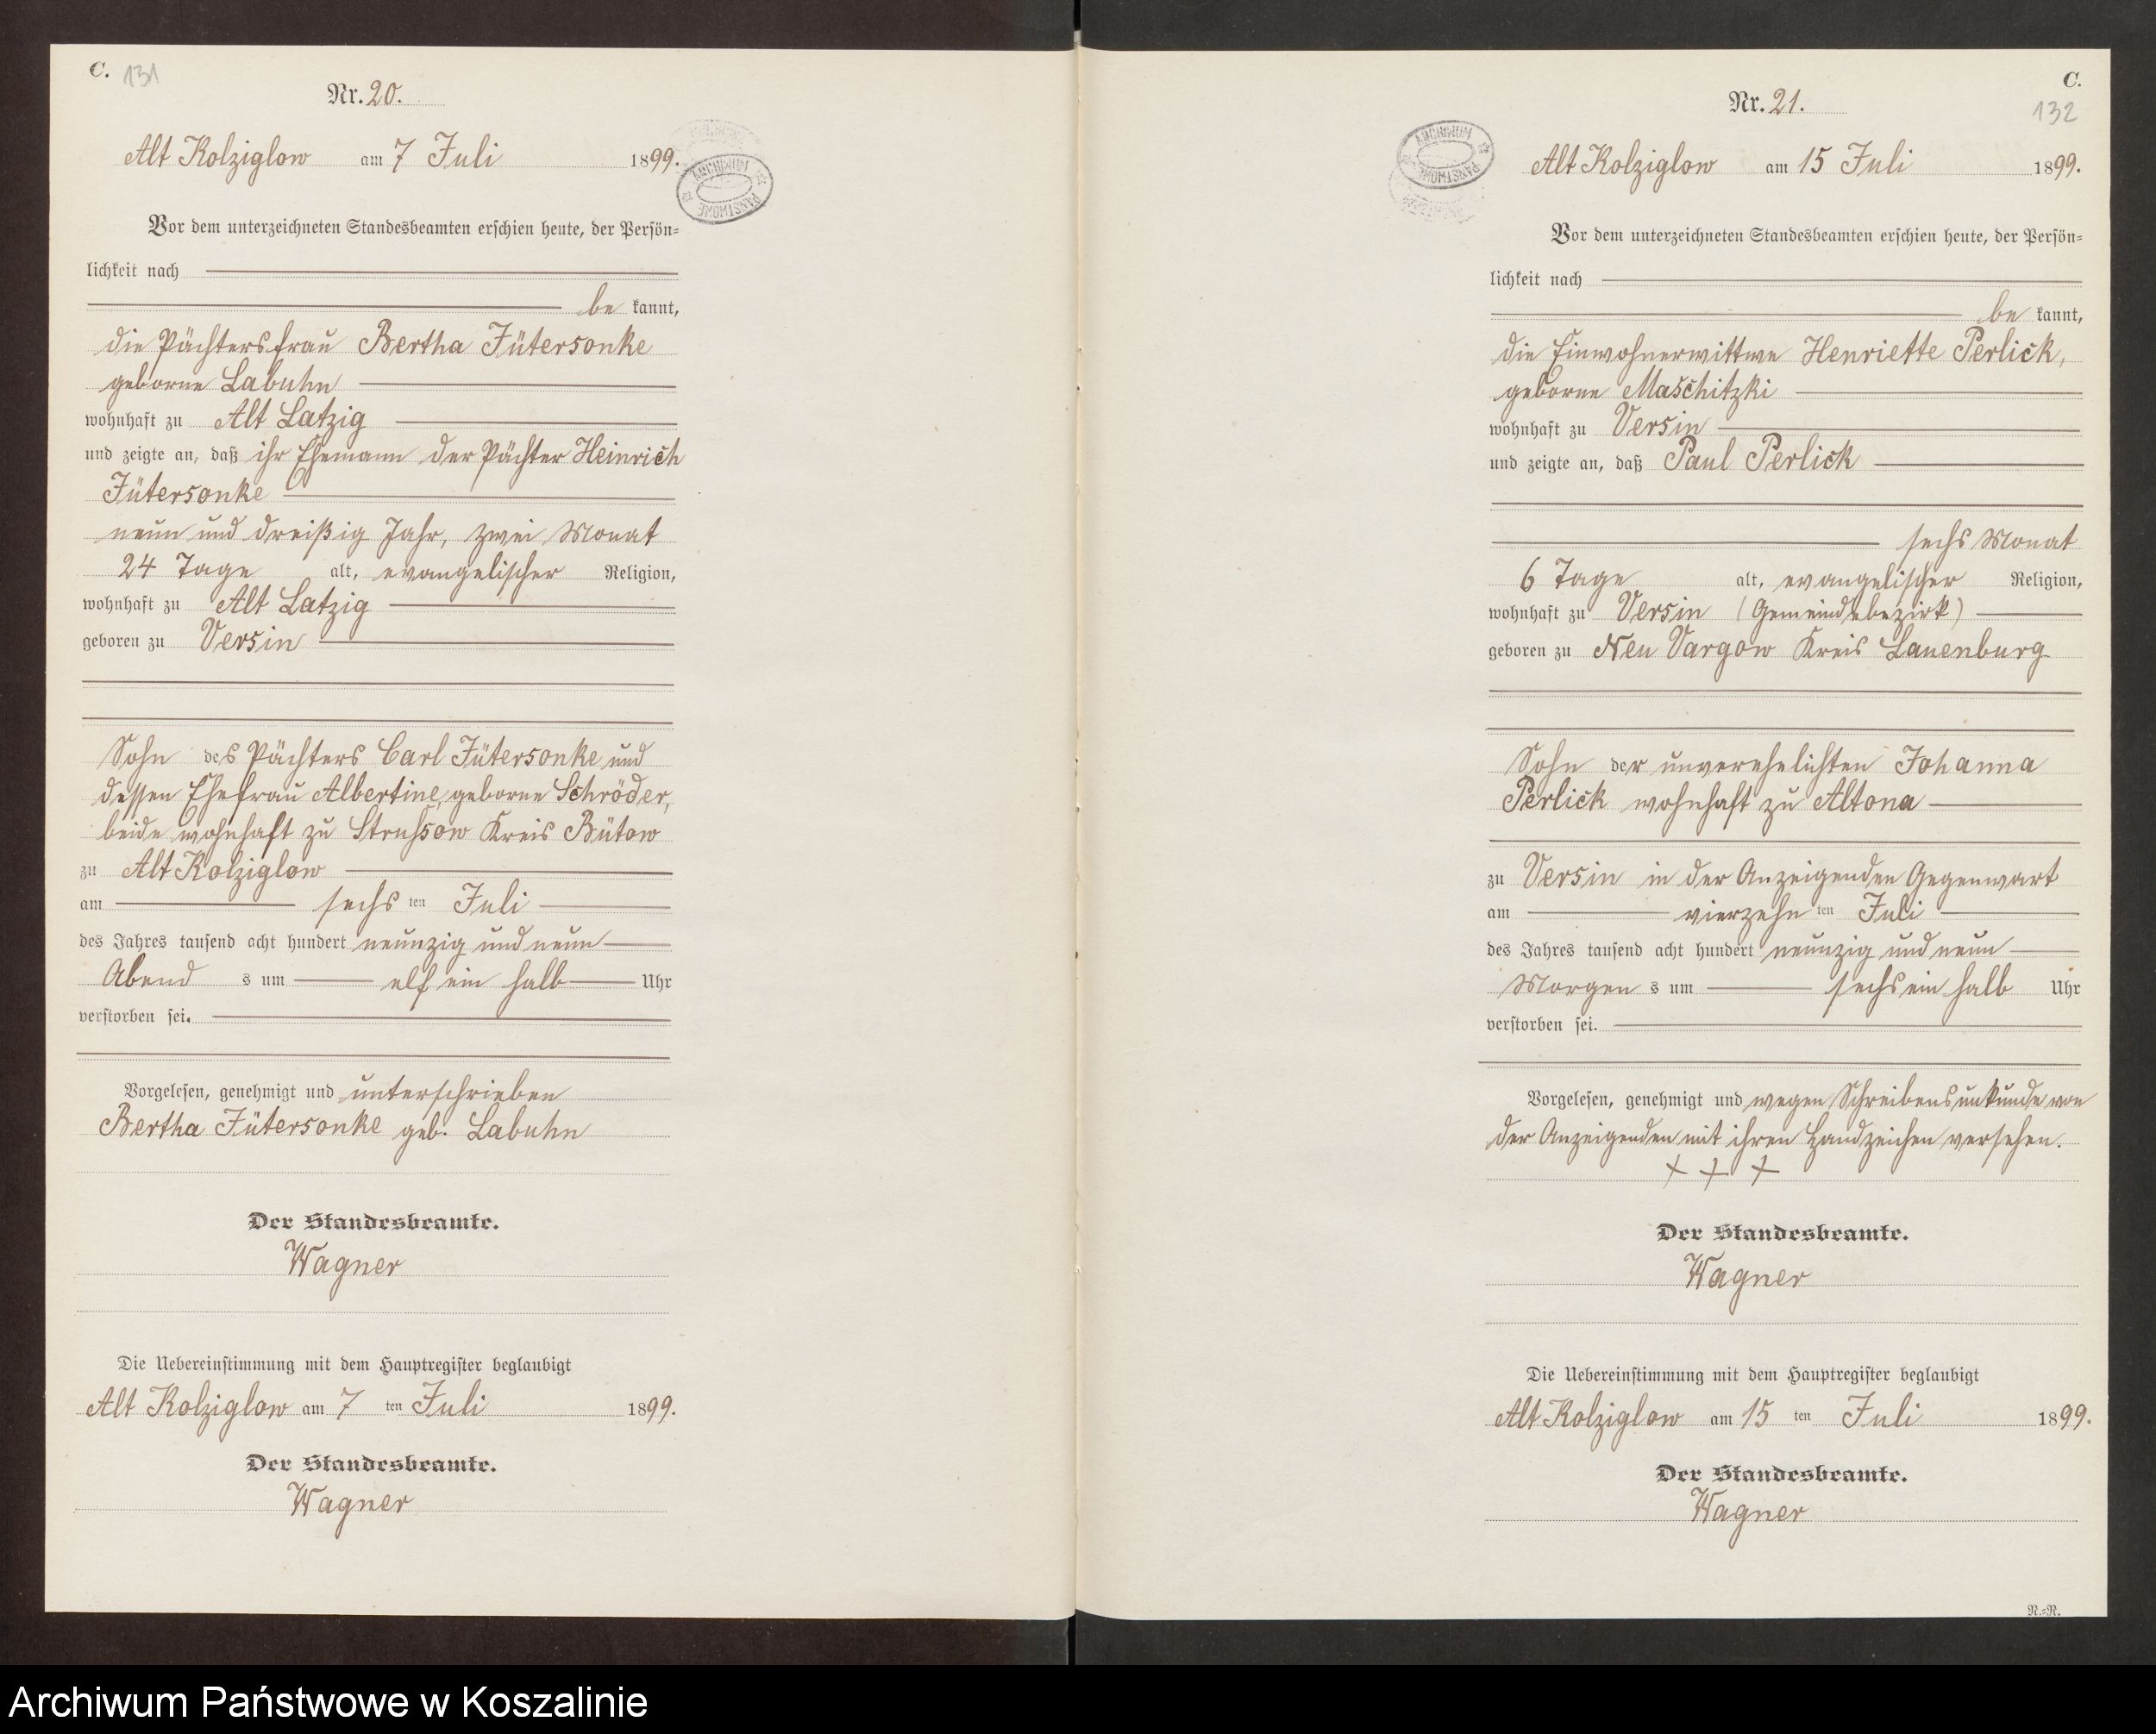 C. 131
Nr. 20.
Alt Kolziglow am 7 Juli 1899.
ARCHIWUM PAŃSTWOWE
Vor dem unterzeichneten Standesbeamten erschien heute, der Persön-
lichkeit nach
be kannt,
die Pächtersfrau Bertha Jütersonke
geborne Labuhn
wohnhaft zu Alt Latzig
und zeigte an, daß ihr Ehemann der Pächter Heinrich
Jütersonke
neun und dreißig Jahr, zwei Monat
24 Tage alt, evangelischer Religion,
wohnhaft zu Alt Latzig
geboren zu Versin
Sohn des Pächters Carl Jütersonke und
dessen Ehefrau Albertine, geborne Schröder,
beide wohnhaft zu Strussow Kreis Bütow
zu Alt Kolziglow
am sechs ten Juli
des Jahres tausend acht hundert neunzig und neun
Abend s um elf ein halb Uhr
verstorben sei.
Vorgelesen, genehmigt und unterschrieben
Bertha Jütersonke geb. Labuhn
Der Standesbeamte.
Wagner
Die Uebereinstimmung mit dem Hauptregister beglaubigt
Alt Kolziglow am 7 ten Juli 1899.
Der Standesbeamte.
Wagner
C.
132
Nr. 21.
Alt Kolziglow am 15 Juli 1899.
ARCHIWUM PAŃSTWOWE
Vor dem unterzeichneten Standesbeamten erschien heute, der Persön-
lichkeit nach
be kannt,
die Einwohnerwittwe Henriette Perlick,
geborne Maschitzki
wohnhaft zu Versin
und zeigte an, daß Paul Perlick
sechs Monat
6 Tage alt, evangelischer Religion,
wohnhaft zu Versin (Gemeindebezirk)
geboren zu Neu Vargow Kreis Lauenburg
Sohn der unverehelichten Johanna
Perlick wohnhaft zu Altona
zu Versin in der Anzeigenden Gegenwart
am vierzehn ten Juli
des Jahres tausend acht hundert neunzig und neun
Morgen s um sechs ein halb Uhr
verstorben sei.
Vorgelesen, genehmigt und wegen Schreibensunkunde von
der Anzeigenden mit ihren Handzeichen versehen.
+ + +
Der Standesbeamte.
Wagner
Die Uebereinstimmung mit dem Hauptregister beglaubigt
Alt Kolziglow am 15 ten Juli 1899.
Der Standesbeamte.
Wagner
N.-R.
Archiwum Państwowe w Koszalinie